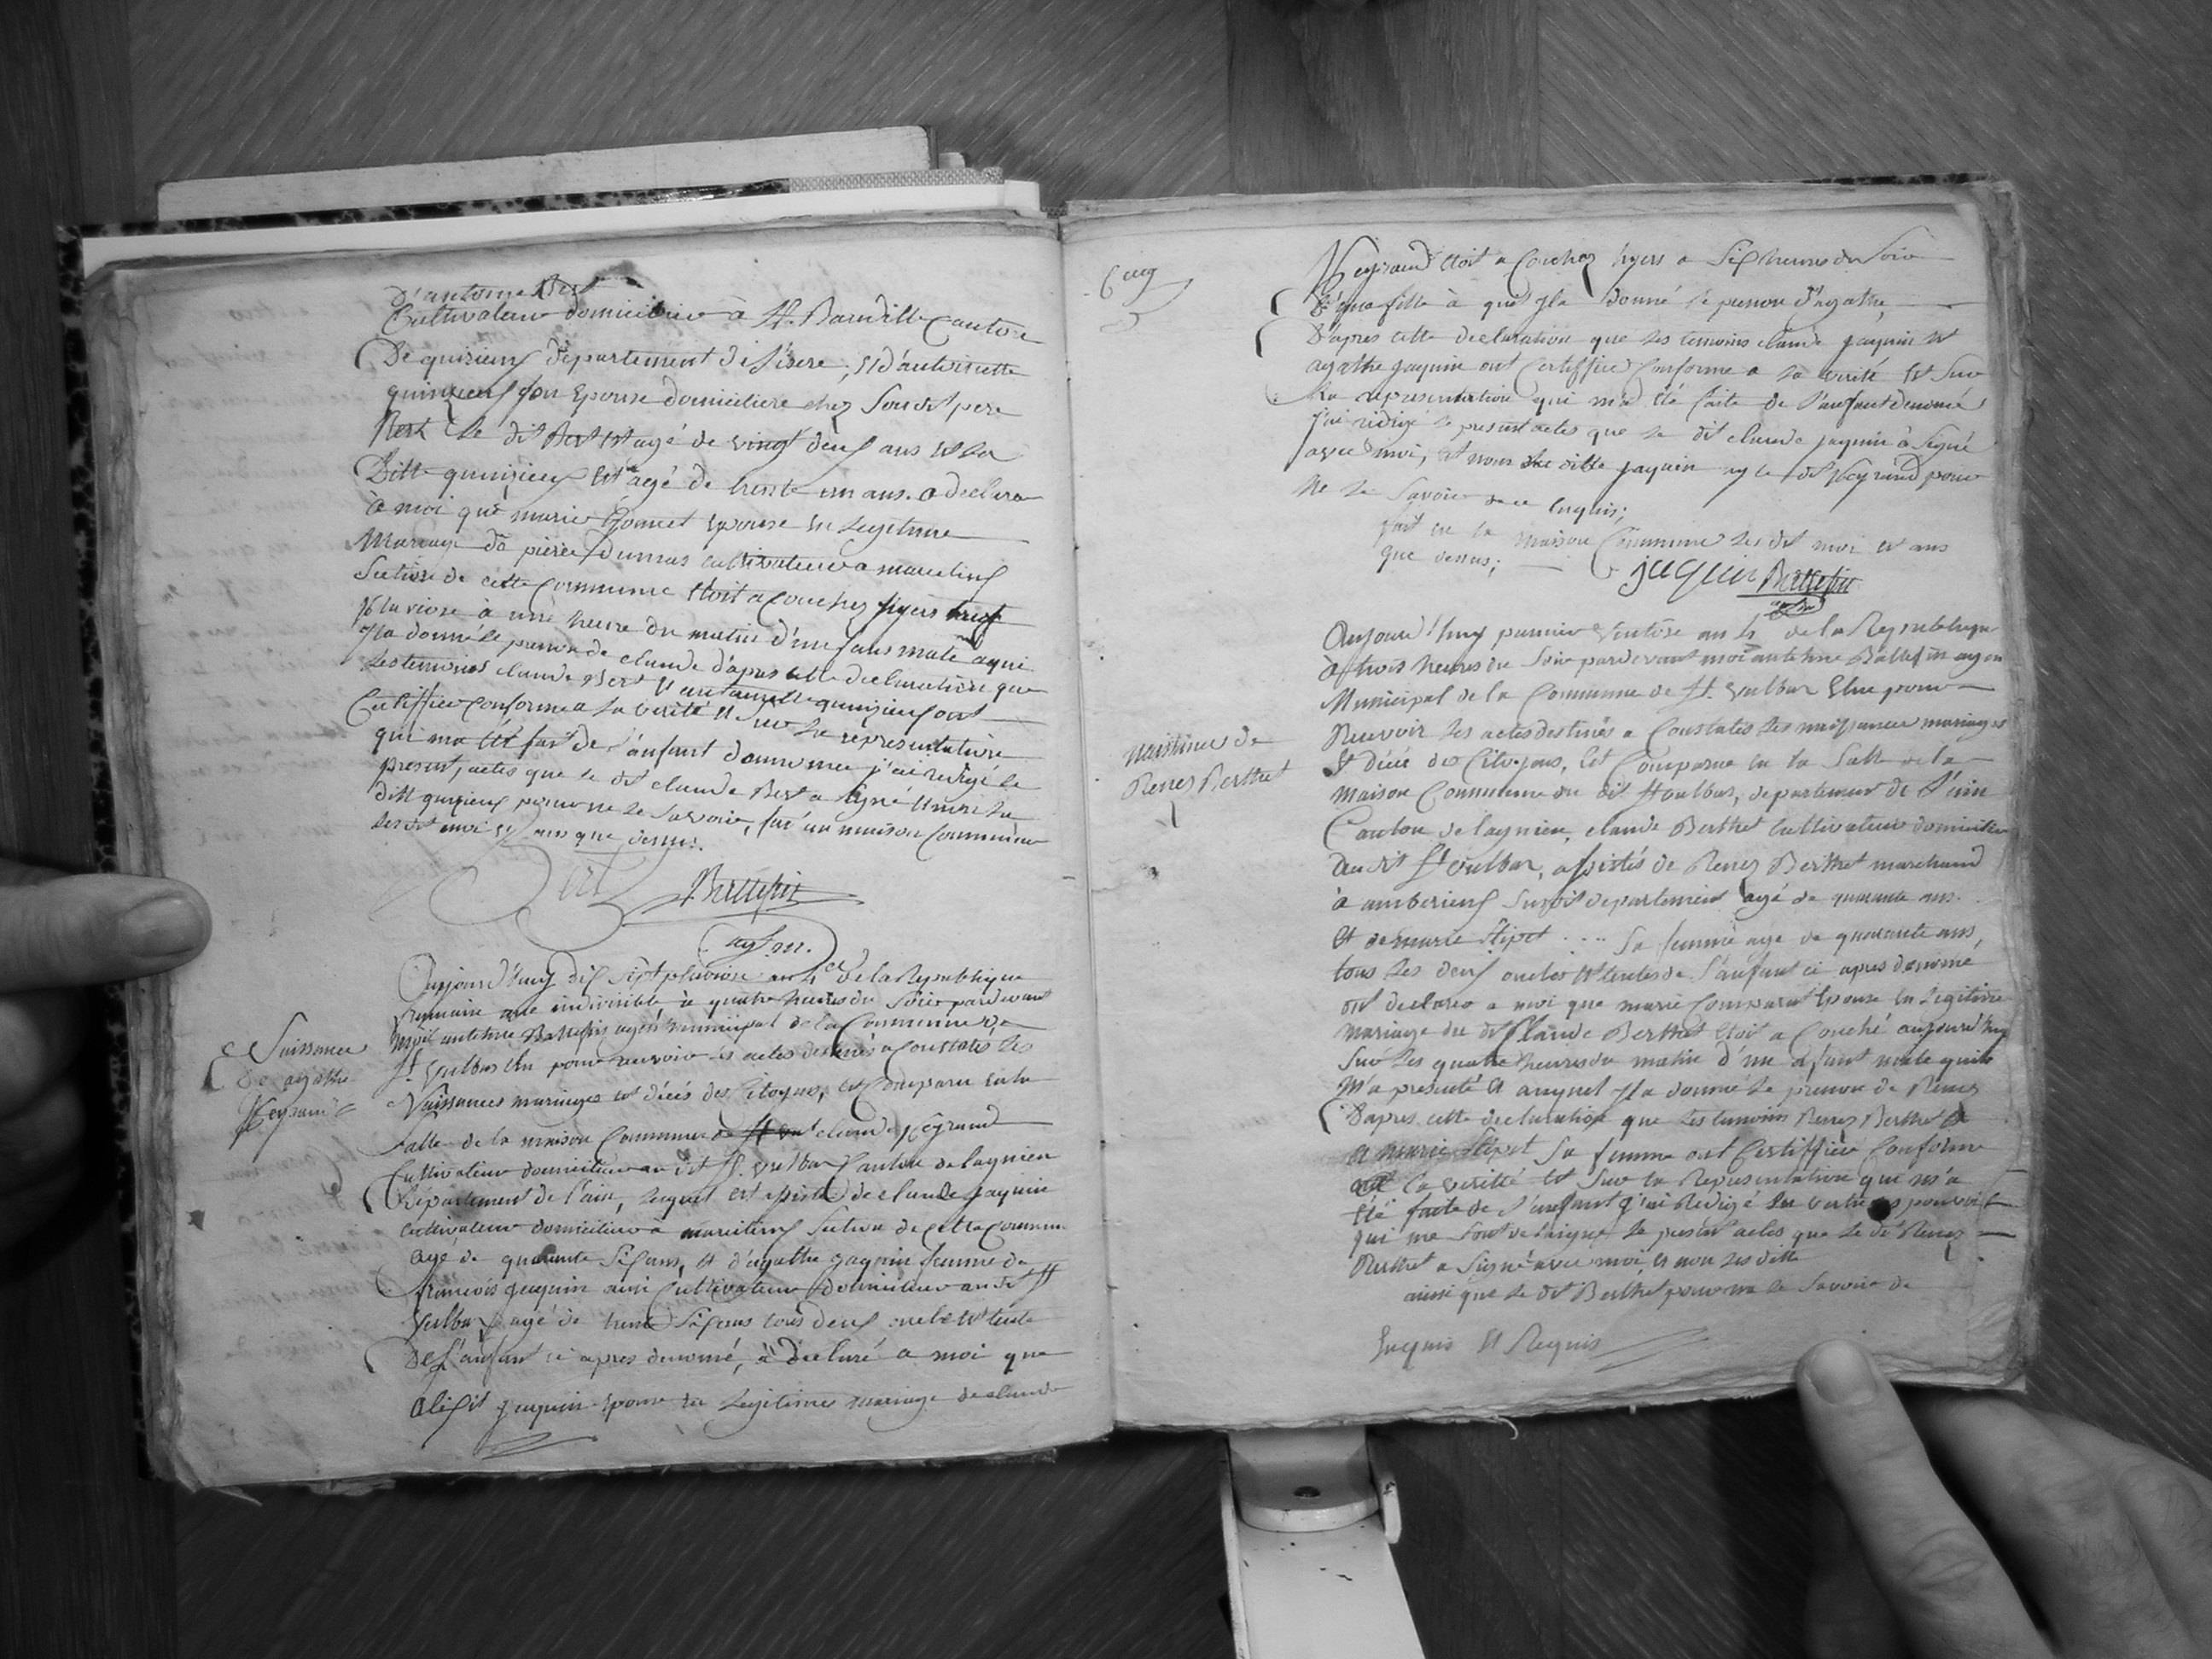 d'antoine Bert
Cultivateur domicilié à St. Baudille Canton
De quirieux département de l'isere, et d'antoinette
quinzieux son Epouse domiciliere chez Son dt pere
le dit Bert est agé de vingt deux ans et la
Ditte quinzieux est agé de trente un ans. a declare
à moi que marie Bonnet Epouse en Legitime
Mariage de pierre Dumas cultivateur a marcelieux
Section de cette Commune Etoit acouchez hyers
pluviose à une heure du matin d'un fans male aqui
Jl a donné le prenom de claude d'apres cette declaration que
les temoins claude Bert et antoinette quinzieux ont
Certiffier conforme a la verité et sur la representation
qui ma Eté fait de l'anfant denommee j'ai redigé le
present actes que le dit claude Bert a signé et non la
ditt quinzieux pour ne le savoir, fai en maison Commune
les dt moi et ans que dessus.
Bert Ballefin
agt mu.
Aujourd'huy dix sept pluviose an 4e de la Republique
francaise une indivisible a quatre heures du Soir pardevant
moi antelme Ballefin agent municipal de la Commune de
St. Vulbas Elu pour recevoir les actes destinés a Constater les
Naissances mariages et décés des Citoyens, est Comparu en la
Salle de la maison Commune claude Veyrand
Cultivateur domicilier au dit St. Vulbas Canton de lagnieu
Département de l'ain, lequel est assisté de claude jaquin
cultivateur domicilier à marcilieux Section de cette Commun
age de quarante six ans, et d'agathe jaquin femme de
francois jaquin aussi Cultivateur domicilier au dit St
Vulbas agé de trente six ans tous deux oncle et tente
De l'anfant ci apres denomé, à Declaré a moi que
jaquin Epouse en Legitimes mariage de claude
Naissance
De agathe
Veyrand
Veyrand Etoit a Couchez hyers a six heures du Soir
D'une fille à qui Jl a Donné le prenom d'agathe,
D'apres cette declaration que les temoins claude jaquin et
agathe jaquin ont Certiffier Conforme a la verité et sur
la representation qui ma Eté faite de l'anfant denomé
J'ai redigé le present actes que le dit claude jaquin à Signé
avec moi, et non la ditte jaquin ny le dt Veyrand pour
ne le Savoir de ce Enquis;
fait en la maison Commune les dit moi et ans
que dessus;
jaquin Ballefin
Aujourd'huy premier Ventose an 4 de la Republique
à trois heures du Soir pardevant moi antelme Ballefin agen
Municipal de la Commune de St. Vulbas Elue pour
Recevoir les actes destinés a Constater les naissances mariages
Et décés des Citoyens, Est Comparue en la Salle de la
maison Commune du dit St vulbas, departement de l'ain
Canton de lagnieu, claude Berthet Cultivateur domicilier
au dit St Vulbas, assistés de Renez Berthet marchand
à amberieux Susdit departement agé de quarante ans.
Et de marie .... Sa femme age de quarante ans,
tous les deux oncles et tentes de l'anfant ci apres denomé
ont declarer a moi que marie Comparat Epouse en Legitime
Mariage du dt Claude Berthet Etoit a Couché aujourd'huy
Sur les quatre heures du matin d'un anfant male quils
m'a presenté et auquel Jl a donné le prenom de Renez
D'apres cette declaration que les temoins Renez Berthet
et marie Sa femme ont Certiffier Conforme
a la verité et Sur la Representation qui m'a
Eté faite de l'anfant j'ai Redigé En vertu des pouvoir
qui me sont deleigné le present actes que le dt Renez
Berthet a Signé avec moi, et non les ditt
ainsi que le dt Berthet pour ne le Savoir de
Enquis Et Requis
naissance de
Renez Berthet